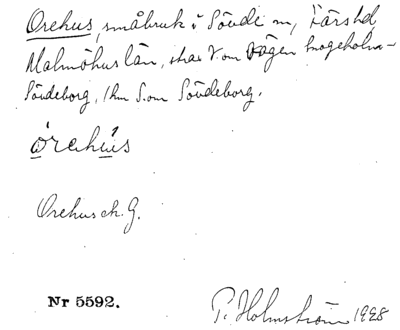 Orehus, småbruk i Sövde sn, Färs hd,
Malmöhus län, strax V om vägen Snogeholm–
Sövdeborg, 1 km S om Sövdeborg.
órehùs
Orehus ek. G.
Nr 5592.
P. Holmström 1928